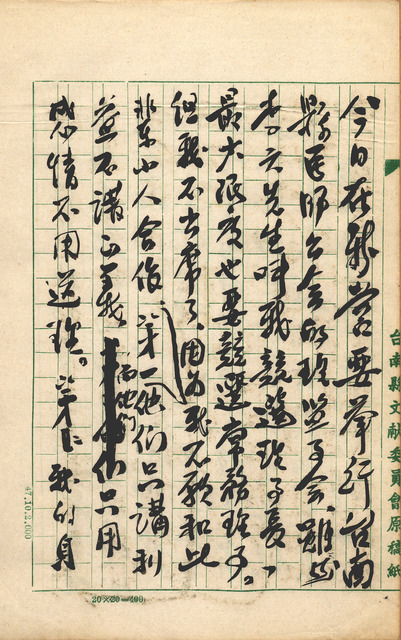 今日在新營要舉行台南
縣醫師公会的理監事会、雖然
李六先生叫我競選理事長、
最大限度也要競選常務理事。
但我不出席了、因為我不願和此
輩小人合作、第一他们只講利
益不講正義、而他們们只用
感情不用道理。第二我的身
台南縣文献委員會原稿紙
47.10.2.000
20×20=400